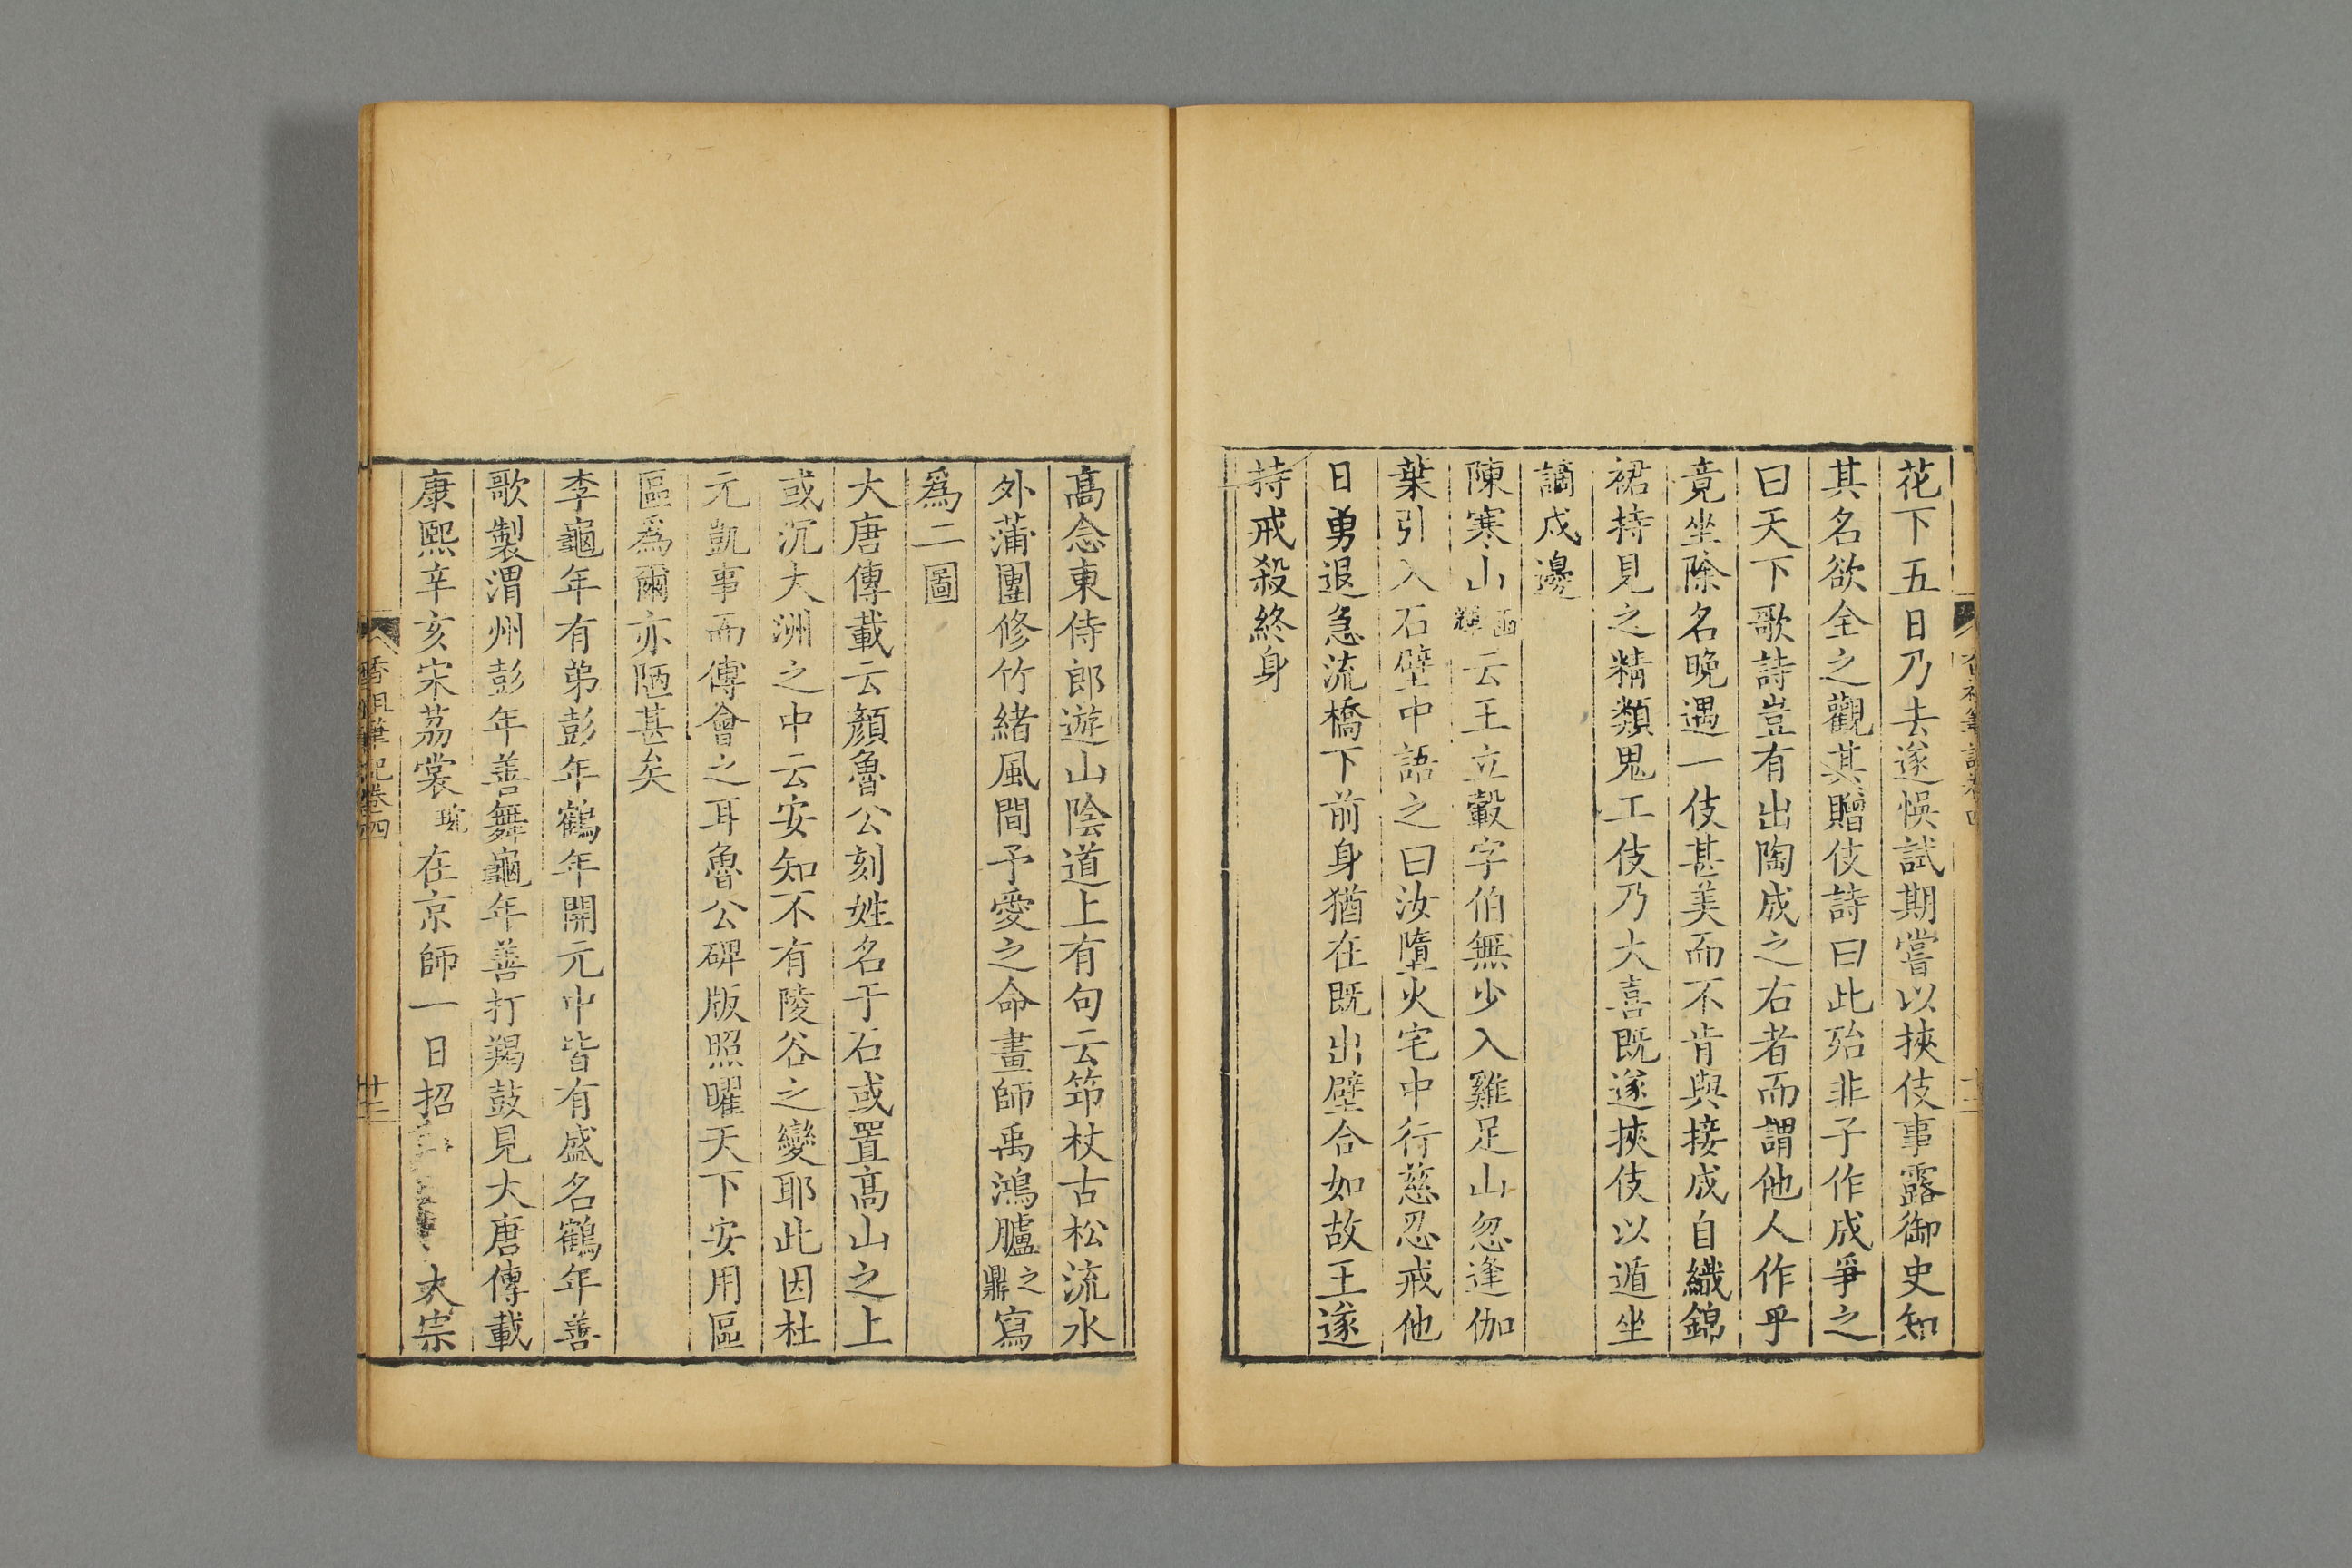 花下五日乃去遂悞試期嘗以挾伎事露御史知
其名欲全之觀其贈伎詩曰此殆非子作成爭之
曰天下歌詩豈有出陶成之右者而謂他人作乎
竟坐除名晚遇一伎甚美而不肯與接成自織錦
裙持見之精類鬼工伎乃大喜既遂挾伎以遁坐
謫戍邊
陳寒山函煇云王立轂字伯無少入雞足山忽逢伽
葉引入石壁中語之曰汝墮火宅中行慈忍戒他
日勇退急流橋下前身猶在既出壁合如故王遂
持戒殺終身
高念東侍郎遊山陰道上有句云笻杖古松流水
外蒲團修竹緒風間予愛之命畫師禹鴻臚之鼎寫
爲二圖
大唐傳載云顏魯公刻姓名于石或置高山之上
或沉大洲之中云安知不有陵谷之變耶此因杜
元凱事而傅會之耳魯公碑版照曜天下安用區
區爲爾亦陋甚矣
李龜年有弟彭年鶴年開元中皆有盛名鶴年善
歌製渭州彭年善舞龜年善打羯鼓見大唐傳載
康熙辛亥宋荔裳琬在京師一日招 太宗
香祖筆記卷四